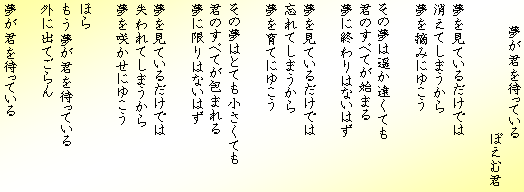 夢が君を待っている
ぽえむ君
夢を見ているだけでは
消えてしまうから
夢を摘みにゆこう
その夢は遥か遠くても
君のすべてが始まる
夢に終わりはないはず
夢を見ているだけでは
忘れてしまうから
夢を育てにゆこう
その夢はとても小さくても
君のすべてが包まれる
夢に限りはないはず
夢を見ているだけでは
失われてしまうから
夢を咲かせにゆこう
ほら
もう夢が君を待っている
外に出てごらん
夢が君を待っている